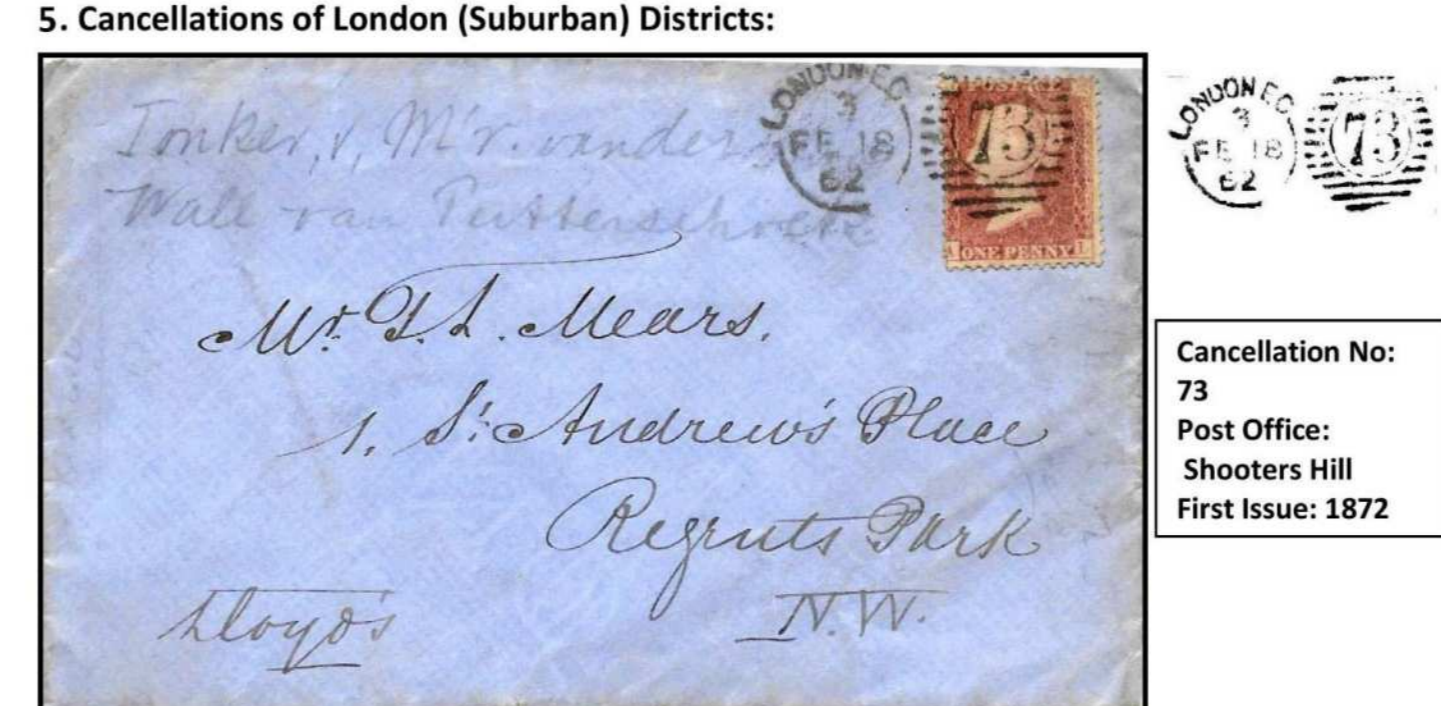 5. Cancellations of London (Suburban) Districts:
Jonker, v, M'r. vander
Wall van Puttershoek
LONDON E.C.
3
FE 18
62
73
POSTAGE
A ONE PENNY L
Mr. T. L. Mears.
1. St. Andrew's Place
Regents Park
N.W.
Lloyd's
LONDON E.C.
3
FE 18
62
73
Cancellation No:
73
Post Office:
Shooters Hill
First Issue: 1872